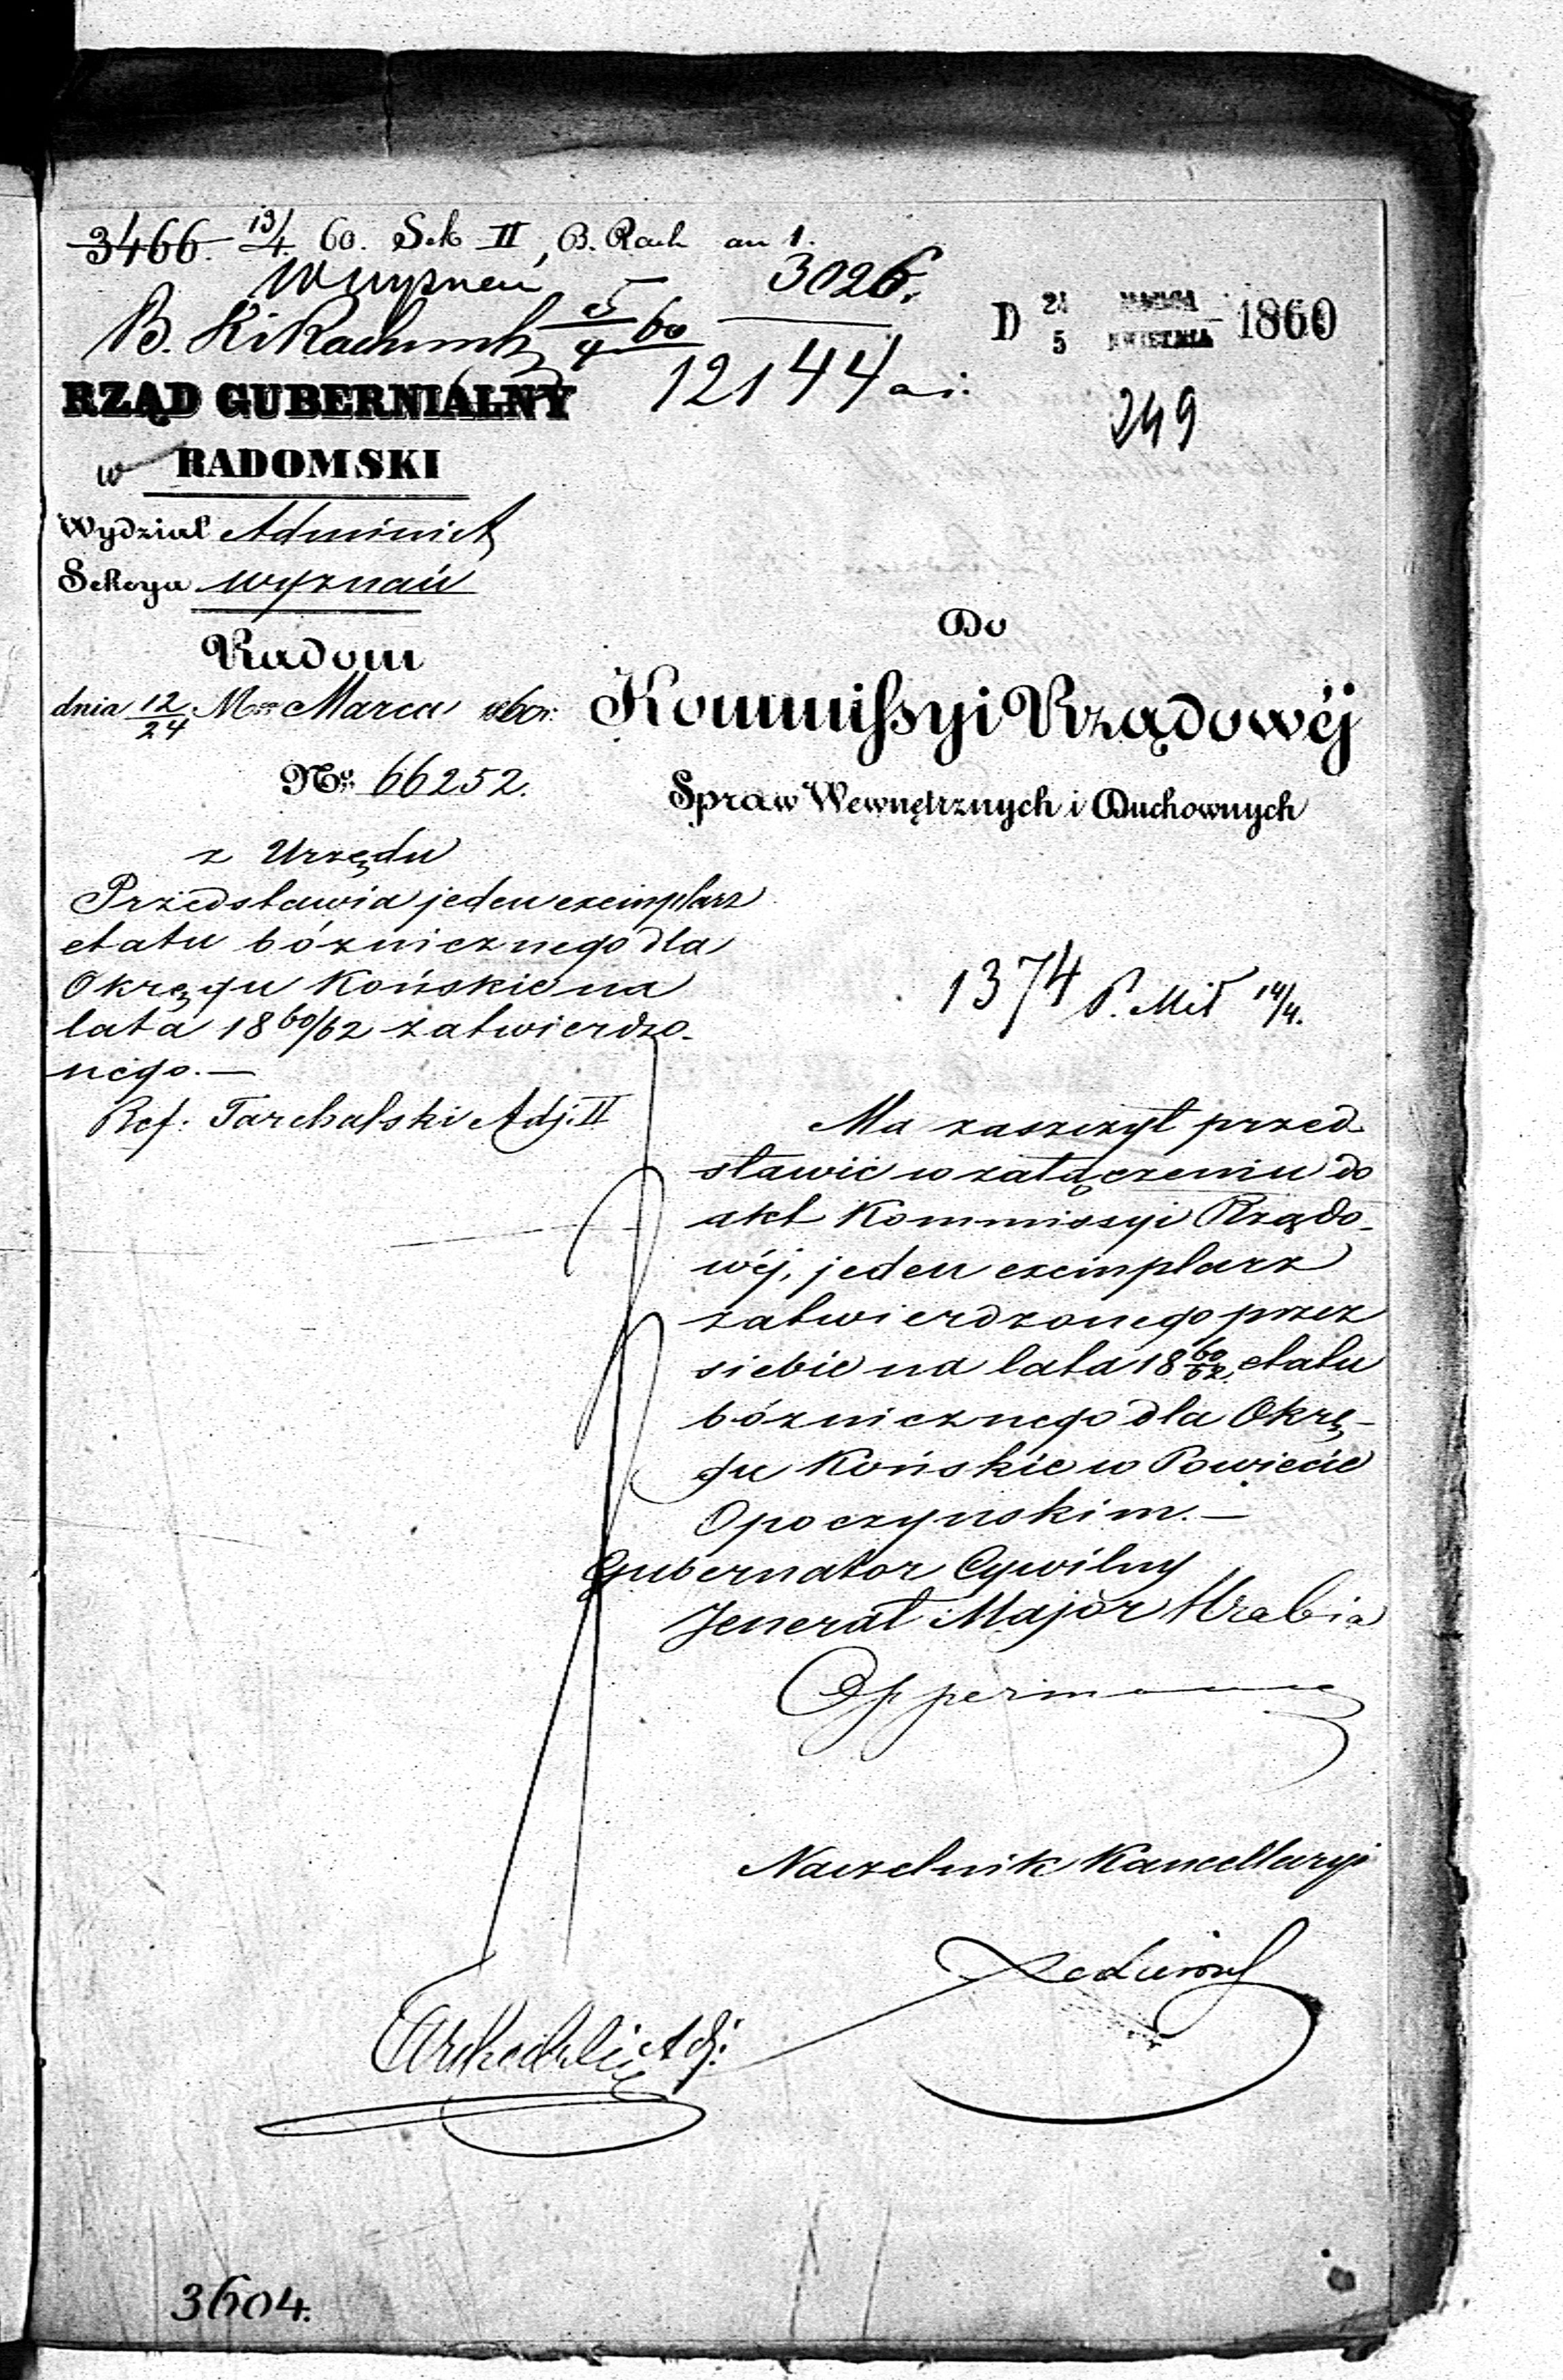 3466. 13/4 60. Sek II, B. Rach an 1.
Wyznań
3026.
B. Ki Rachunk 5/4 60
12144
D 24 MARCA 1860
5 KWIETNIA
249
RZĄD GUBERNIALNY
w RADOMSKI
Wydział Administ
Sekcya wyznań
Radom
dnia 12/24 M Marca 1860 r:
No 66252.
Do
Kommissyi Rządowéj
Spraw Wewnętrznych i Duchownych
z Urzędu
Przedstawia jeden exemplarz
etatu bóżnicznego dla
Okręgu Końskie na
lata 18 60/62 zatwierdzo-
nego. —
Ref: Tarchalski Adj. II
1374 P. Mił 14/4.
Ma zaszczyt przed-
stawić w załączeniu do
akt Kommissyi Rządo-
wéj, jeden exemplarz
zatwierdzonego przez
siebie na lata 18 60/62 etatu
bóżnicznego dla Okrę-
gu Końskie w Powiecie
Opoczynskim. —
Gubernator Cywilny
Jenerał Major Hrabia
Opperman
Naczelnik Kancellaryi
Tarchalski Adj:
3604.